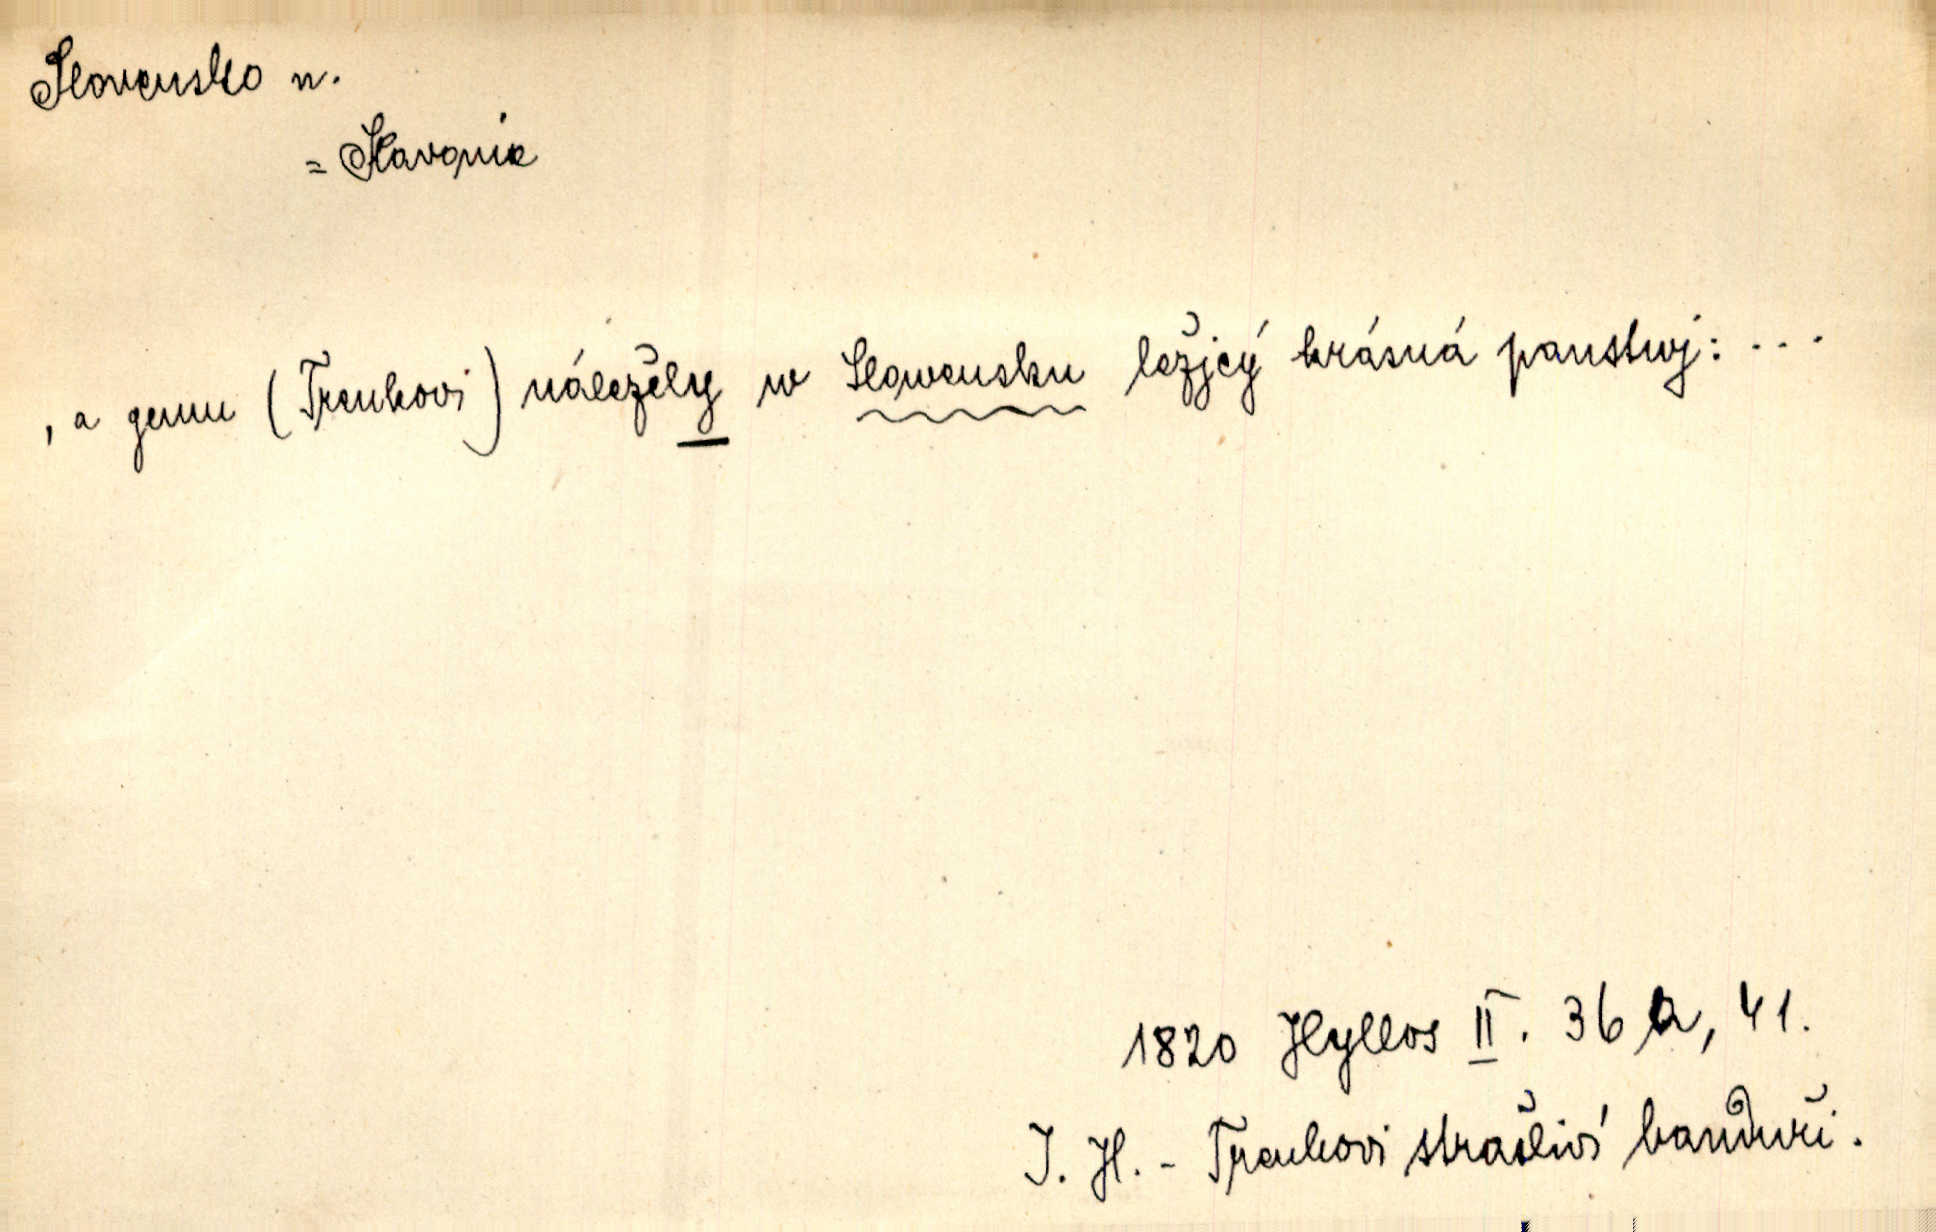 Slovensko n.
= Slavonie
, a gemu (Trenkovi) náležely w Slowensku ležjcý krásná panstwj: ...
1820 Hyllos II. 36 a, 41.
J. H. - Trenkovi strašliví banduři.